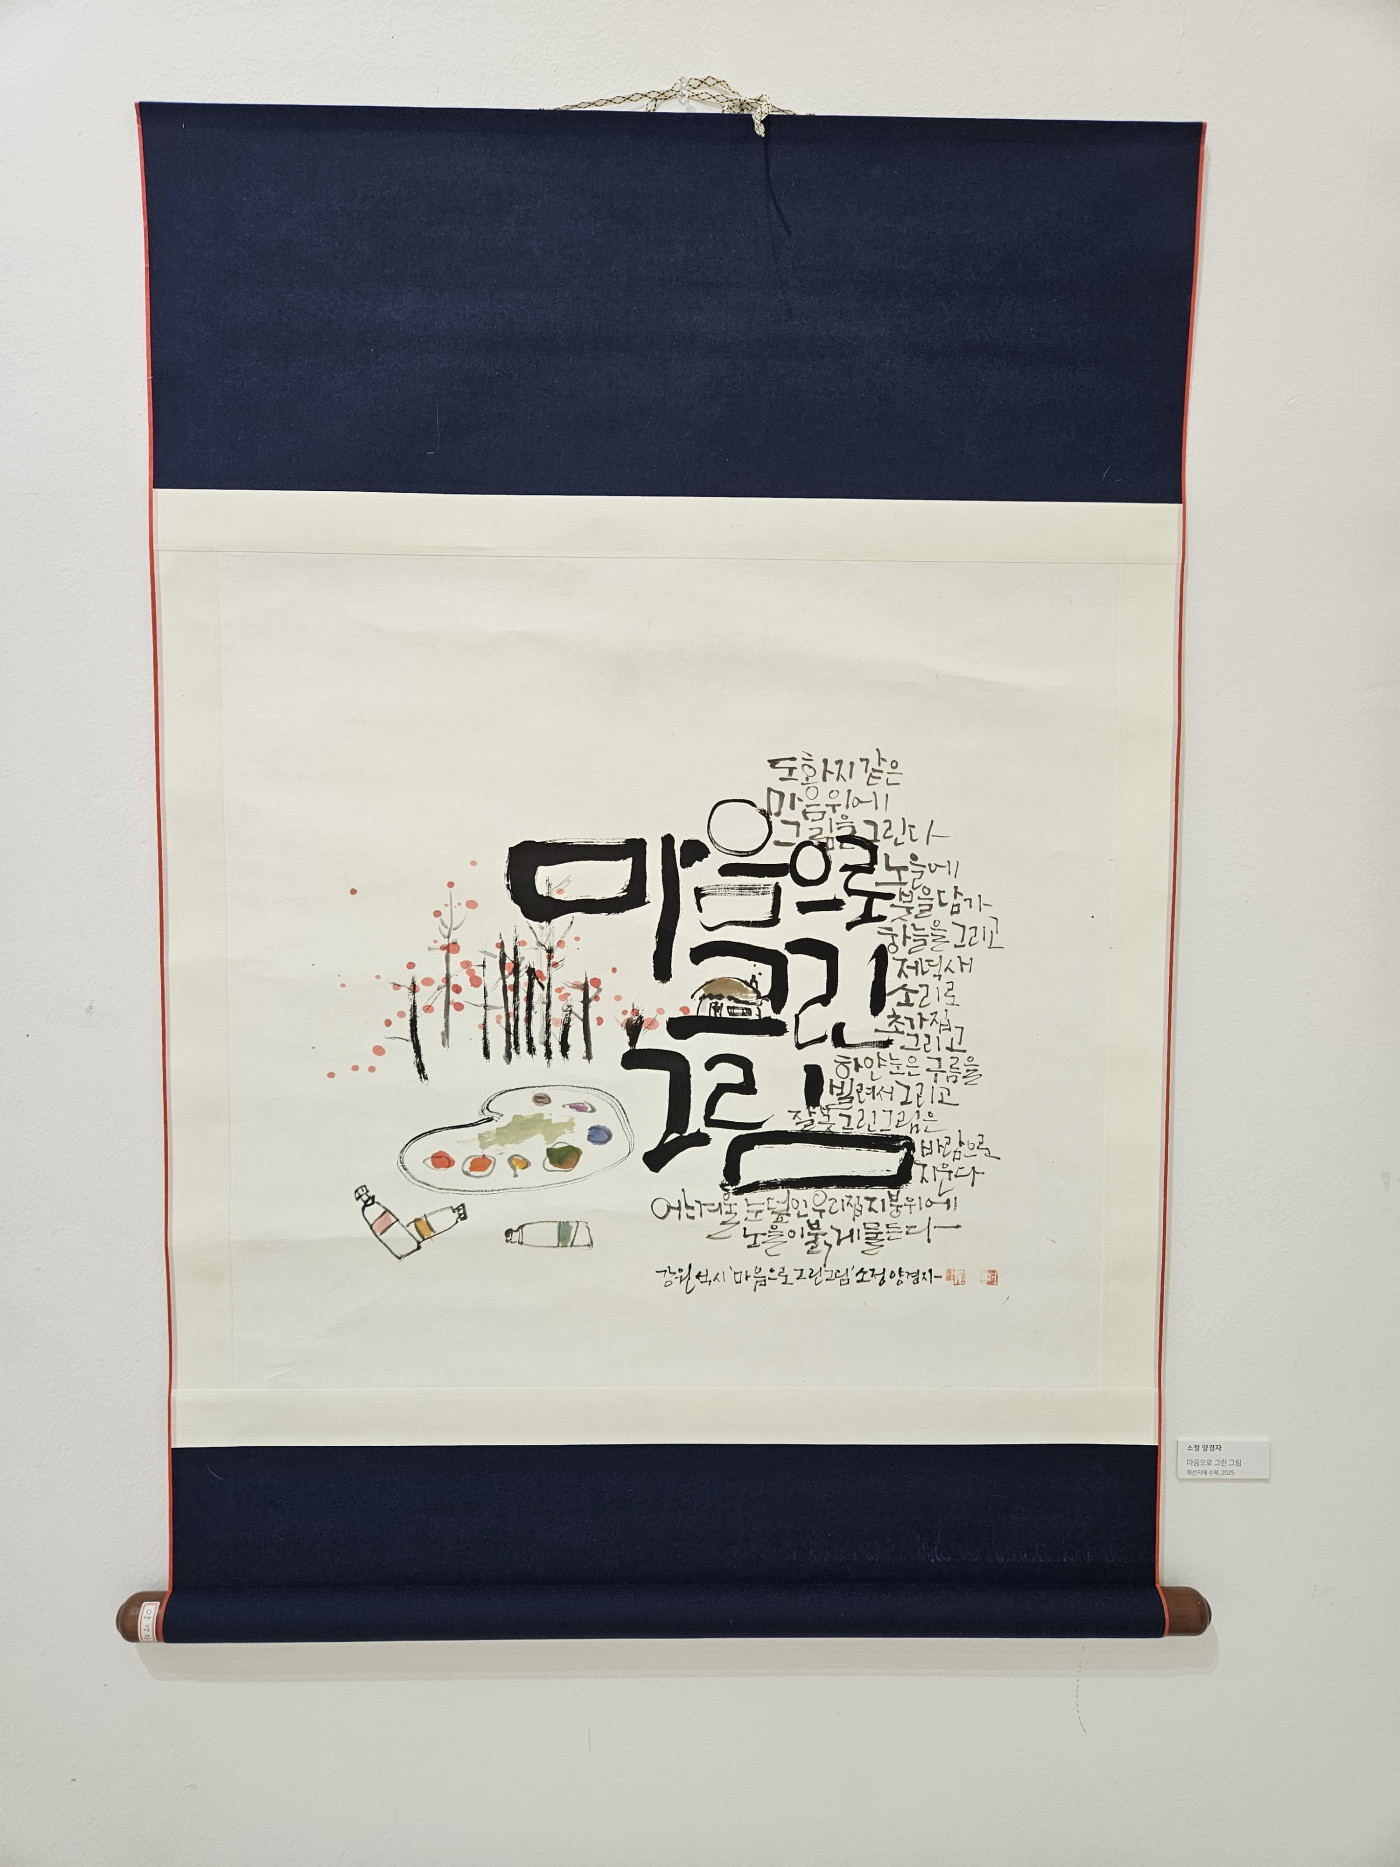 마음으로
그린
그림
도화지 같은
마음위에
그림을 그린다
노을에
붓을 담가
하늘을 그리고
저녁새
소리로
초가집
그리고
하얀눈은 구름을
빌려서 그리고
잘못 그린 그림은
바람으로
지운다
어느겨울 눈덮인 우리집 지붕위에
노을이 붉게 물든다
강원석 시 '마음으로 그린 그림' 소정 양경자
소정 양경자
마음으로 그린 그림
화선지에 수묵, 2025